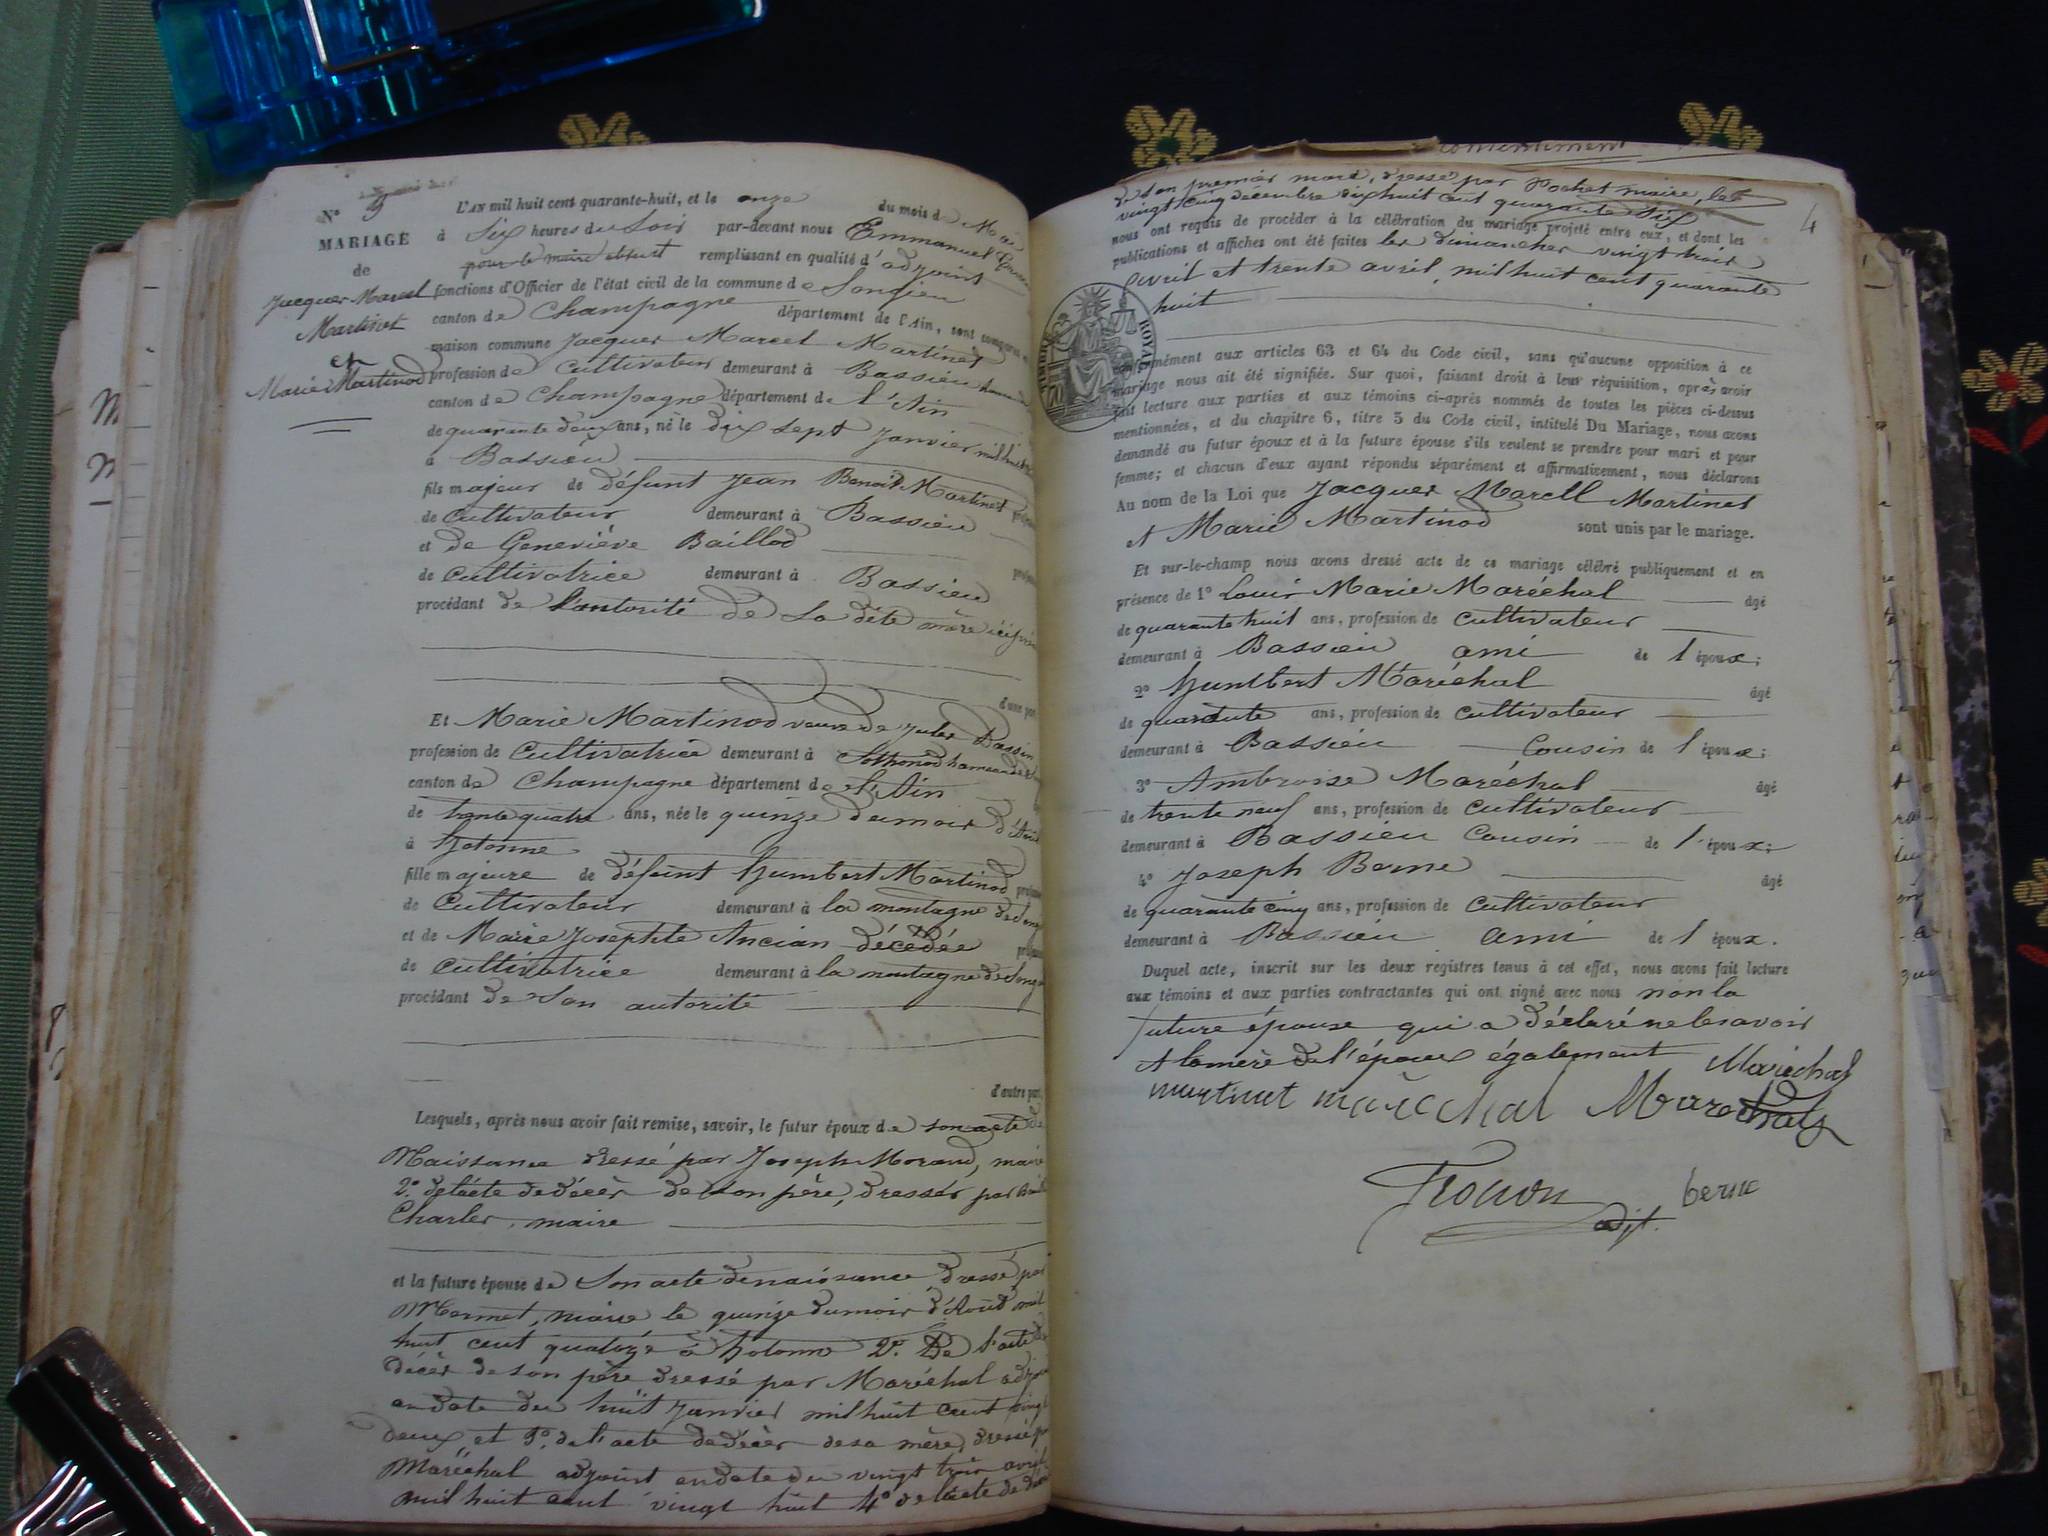 N° 9
MARIAGE
de
Jacques Marcel
Martinet
et
Marie Martinod
L'AN mil huit cent quarante-huit, et le onze du mois de Mai
à Six heures du Soir par-devant nous Emmanuel
pour le maire absent remplissant en qualité d'adjoint
fonctions d'Officier de l'état civil de la commune de Songieu
canton de Champagne département de l'Ain, sont comparus
maison commune Jacques Marcel Martinet
profession de Cultivateur demeurant à Bassieu
canton de Champagne département de l'Ain
de quarante deux ans, né le dix sept Janvier mil huit
à Bassieu
fils majeur de défunt Jean Benoît Martinet
de Cultivateur demeurant à Bassieu
et de Geneviève Baillod
de Cultivatrice demeurant à Bassieu
procédant de l'autorité de Sa dite mère ici
d'une part
Et Marie Martinod veuve de Jules Bassin
profession de Cultivatrice demeurant à Sothonod hameau de
canton de Champagne département de l'Ain
de trente quatre ans, née le quinze du mois d'Août
à hotonne
fille majeure de défunt humbert Martinod
de Cultivateur demeurant à la montagne de
et de Marie Josephte Ancian décédée
de Cultivatrice demeurant à la montagne de
procédant de son autorité
d'autre part,
Lesquels, après nous avoir fait remise, savoir, le futur époux de son acte de
Naissance dressé par Joseph Morand, maire
2° de l'acte de décès de son père, dressés par
Charles, maire
et la future épouse de Son acte de naissance dressé par
Mermet, maire le quinze du mois d'Août mil
huit cent quatorze à hotonne 2° De l'acte de
décès de son père dressé par Maréchal adjoint
en date du huit janvier mil huit cent vingt
deux et 3° de l'acte de décès de sa mère, dressé par
Maréchal adjoint en date du vingt trois avril
mil huit cent vingt huit 4° de l'acte de décès
consentement
4
de son premier mari, dressé par Pochet maire, le
vingt cinq décembre dix huit cent quarante six
nous ont requis de procéder à la célébration du mariage projeté entre eux, et dont les
publications et affiches ont été faites les dimanches vingt trois
avril et trente avril, mil huit cent quarante
huit
TIMBRE ROYAL
conformément aux articles 63 et 64 du Code civil, sans qu'aucune opposition à ce
mariage nous ait été signifiée. Sur quoi, faisant droit à leur réquisition, après avoir
fait lecture aux parties et aux témoins ci-après nommés de toutes les pièces ci-dessus
mentionnées, et du chapitre 6, titre 5 du Code civil, intitulé Du Mariage, nous avons
demandé au futur époux et à la future épouse s'ils veulent se prendre pour mari et pour
femme; et chacun d'eux ayant répondu séparément et affirmativement, nous déclarons
Au nom de la Loi que Jacques Marcell Martinet
et Marie Martinod sont unis par le mariage.
Et sur-le-champ nous avons dressé acte de ce mariage célébré publiquement et en
présence de 1° Louis Marie Maréchal âgé
de quarante huit ans, profession de Cultivateur
demeurant à Bassieu ami de l époux;
2° humbert Maréchal âgé
de quarante ans, profession de Cultivateur
demeurant à Bassieu Cousin de l époux;
3° Ambroise Maréchal âgé
de trente neuf ans, profession de Cultivateur
demeurant à Bassieu Cousin de l'époux;
4° Joseph Berne âgé
de quarante cinq ans, profession de Cultivateur
demeurant à Bassieu ami de l époux.
Duquel acte, inscrit sur les deux registres tenus à cet effet, nous avons fait lecture
aux témoins et aux parties contractantes qui ont signé avec nous non la
future épouse qui a déclaré ne le savoir
et la mère de l'époux également Maréchal
martinet maréchal Marechal
berne
adjt.